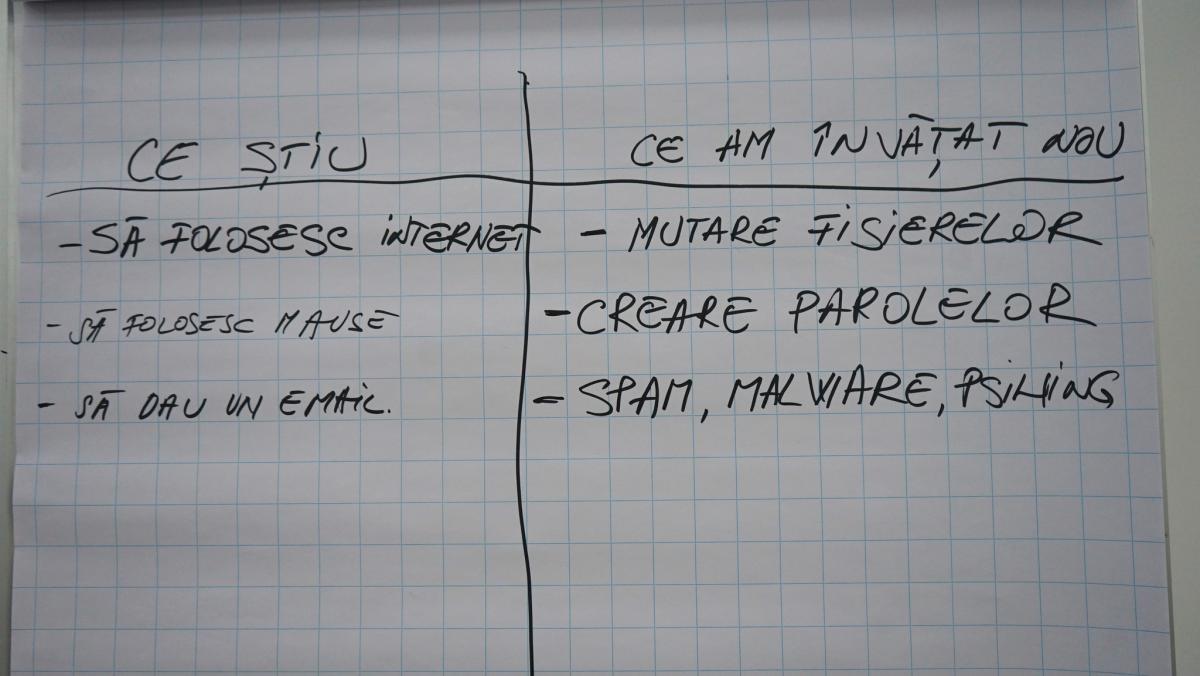 CE ȘTIU
- SĂ FOLOSESC INTERNET
- SĂ FOLOSESC MAUSE
- SĂ DAU UN EMAIL.
CE AM ÎNVĂȚAT NOU
- MUTARE FISIERELOR
- CREARE PAROLELOR
- SPAM, MALWARE, PSIHING